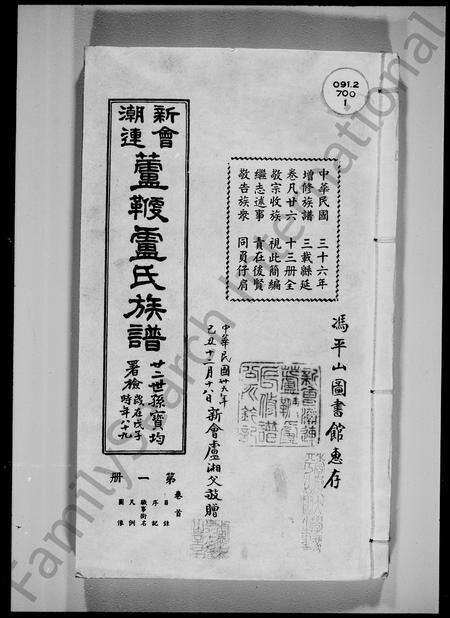 091.2
700
1
中華民國 三十六年
增修族譜 三載緜延
卷凡廿六 十三册全
敬宗收族 視此簡編
繼志述事 責在後賢
敬告族衆 同負仔肩
馮平山圖書館惠存
中華民國卅八年
己丑十二月十八日新會盧湘父敬贈
新會
潮連
蘆鞭盧氏族譜
廿二世孫寶均
署檢
歲在戊子
時年八十九
第一册
卷首
目註
序記
職事銜名
凡例
圖像
FamilySearch International